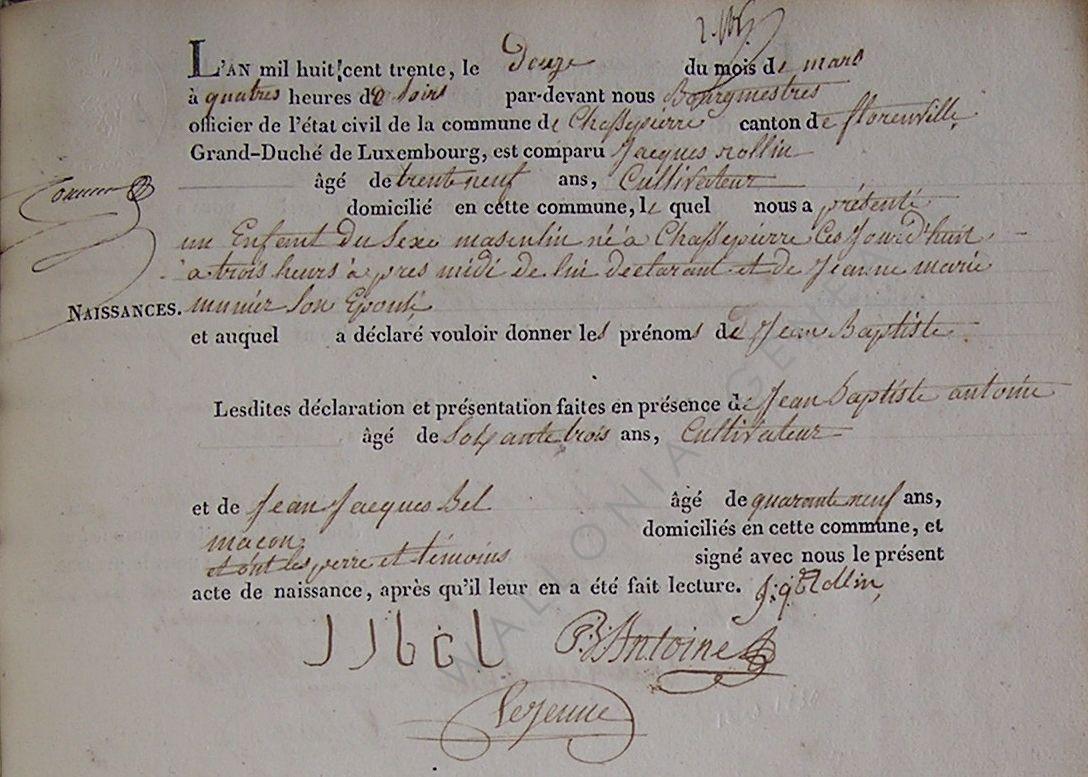 L'AN mil huit cent trente, le Douze du mois de mars
à quatres heures de Soirs par-devant nous Bourgmestres
officier de l'état civil de la commune de Chassepierre canton de florenville,
Grand-Duché de Luxembourg, est comparu Jacques rollin
âgé de trente neuf ans, Cultivateur
domicilié en cette commune, le quel nous a présenté
un Enfant du Sexe masculin né à Chassepierre Ces Jourd'huit
a trois heurs à pres midi de lui declarant et de Jeanne marie
munier Son Epouse,
NAISSANCES.
et auquel a déclaré vouloir donner les prénoms de Jean Baptiste
Lesdites déclaration et présentation faites en présence de Jean Baptiste antoine
âgé de Soixante trois ans, Cultivateur
et de Jean Jacques Bel âgé de quarante neuf ans,
maçon domiciliés en cette commune, et
et ont les perre et témoins signé avec nous le présent
acte de naissance, après qu'il leur en a été fait lecture. J. jq Rollin,
JJ bel J.B. Antoine
Lejeune
WALLONIA GENEA